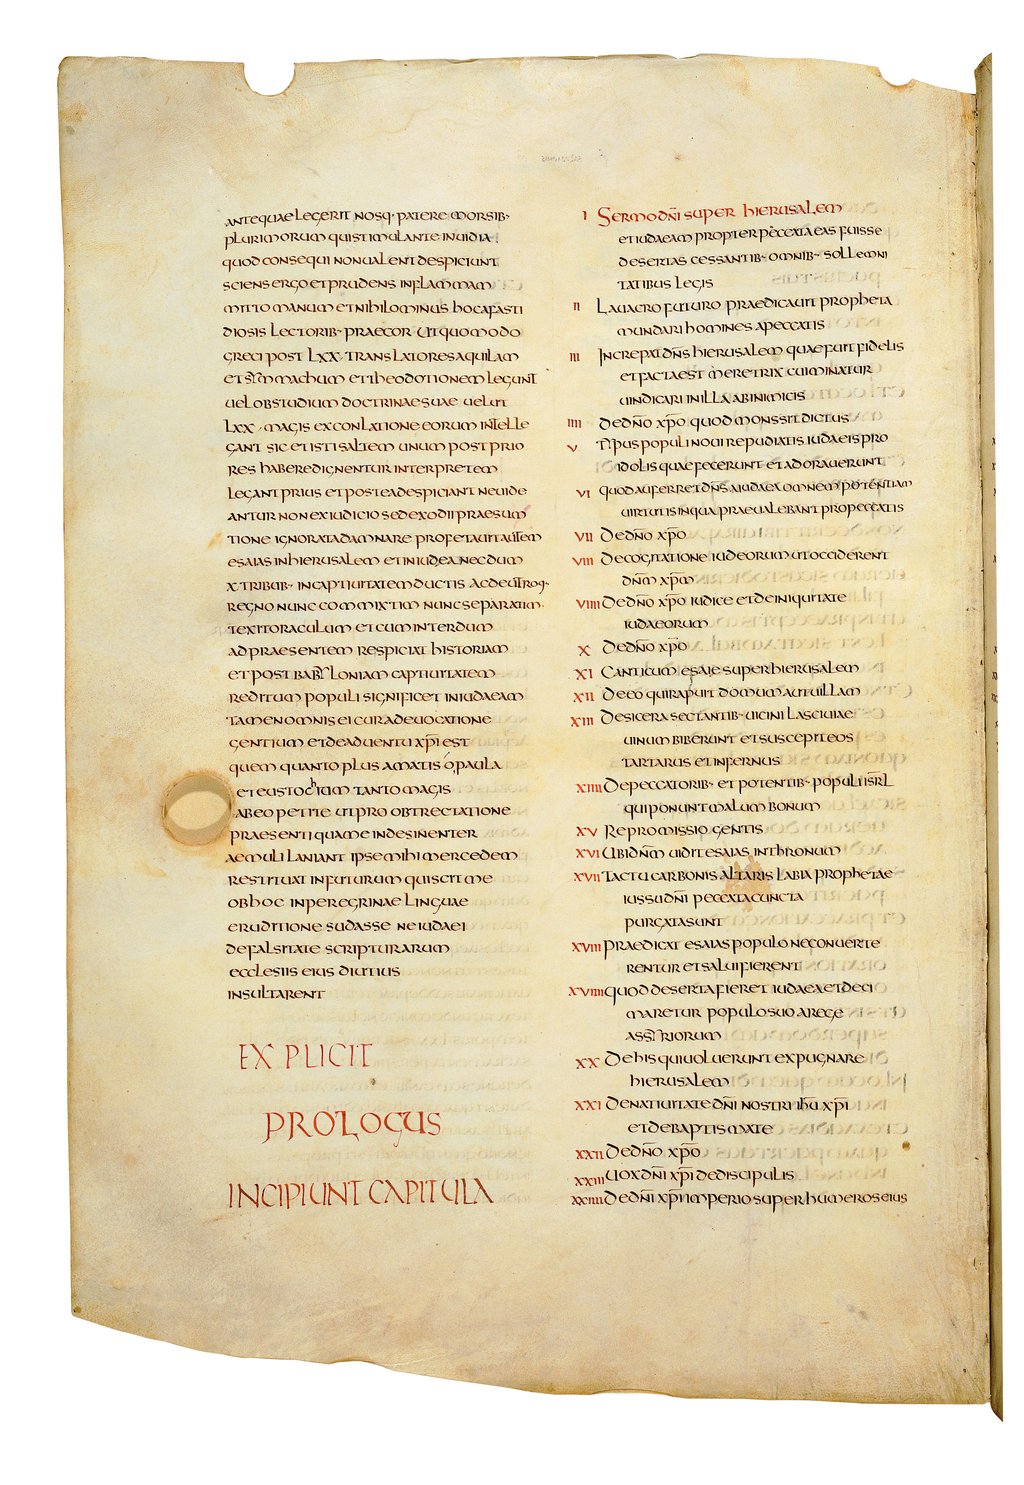 ANTEQUAE LEGERIT NOSQ· PATERE MORSIB·
PLURIMORUM QUI STIMULANTE INUIDIA
QUOD CONSEQUI NON UALENT DESPICIUNT
SCIENS ERGO ET PRUDENS IN FLAMMAM
MITTO MANUM ET NIHILOMINUS HOC A FASTI
DIOSIS LECTORIB· PRAECOR UT QUOMODO
GRECI POST LXX· TRANSLATORES AQUILAM
ET SYMMACHUM ET THEODOTIONEM LEGUNT
UEL OB STUDIUM DOCTRINAE SUAE UEL UT
LXX· MAGIS EX CONLATIONE EORUM INTELLE
GANT SIC ET ISTI SALTEM UNUM POST PRIO
RES HABERE DIGNENTUR INTERPRETEM
LEGANT PRIUS ET POSTEA DESPICIANT NE UIDE
ANTUR NON EX IUDICIO SED EX ODII PRAESUM
TIONE IGNORATA DAMNARE PROFETAUIT AUTEM
ESAIAS IN HIERUSALEM ET IN IUDEA NECDUM
X TRIBUB· IN CAPTIUITATEM DUCTIS AC DE UTROQ·
REGNO NUNC COMMIXTIM NUNC SEPARATIM·
TEXIT ORACULUM ET CUM INTERDUM
AD PRAESENTEM RESPICIAT HISTORIAM
ET POST BABYLONIAM CAPTIUITATEM
REDITUM POPULI SIGNIFICET IN IUDAEAM
TAMEN OMNIS EI CURA DE UOCATIONE
GENTIUM ET DE ADUENTU XP̅I EST
QUEM QUANTO PLUS AMATIS O PAULA
ET EUSTOCHIUM TANTO MAGIS
AB EO PETITE UT PRO OBTRECTATIONE
PRAESENTI QUA ME INDESINENTER
AEMULI LANIANT IPSE MIHI MERCEDEM
RESTITUAT IN FUTURUM QUI SCIT ME
OB HOC IN PEREGRINAE LINGUAE
ERUDITIONE SUDASSE NE IUDAEI
DE FALSITATE SCRIPTURARUM
ECCLESIIS EIUS DIUTIUS
INSULTARENT
EXPLICIT
PROLOGUS
INCIPIUNT CAPITULA
I SERMO DN̅I SUPER HIERUSALEM
ET IUDAEAM PROPTER PECCATA EAS FUISSE
DESERTAS CESSANTIB· OMNIB· SOLLEMNI
TATIBUS LEGIS
II LAUACRO FUTURO PRAEDICAUIT PROPHETA
MUNDARI HOMINES A PECCATIS
III INCREPAT DN̅S HIERUSALEM QUAE FUIT FIDELIS
ET FACTA EST MERETRIX CUI MINATUR
UINDICARI IN ILLA AB INIMICIS
IIII DE DN̅O XP̅O QUOD MONS SIT DICTUS
V TYPUS POPULI NOUI REPUDIATIS IUDAEIS PRO
IDOLIS QUAE FECERUNT ET ADORAUERUNT
VI QUOD AUFERRET DN̅S A IUDAEA OMNEM POTENTIAM
UIRTUTIS IN QUA PRAEUALEBANT PRO PECCATIS
VII DE DN̅O XP̅O
VIII DE COGITATIONE IUDEORUM UT OCCIDERENT
DN̅M XP̅M
VIIII DE DN̅O XP̅O IUDICE ET DE INIQUITATE
IUDAEORUM
X DE DN̅O XP̅O
XI CANTICUM ESAIE SUPER HIERUSALEM
XII DE EO QUI RAPUIT DOMUM AUT UILLAM
XIII DE SICERA SECTANTIB· UICINI LASCIUIAE
UINUM BIBERUNT ET SUSCEPIT EOS
TARTARUS ET INFERNUS
XIIII DE PECCATORIB· ET POTENTIB· POPULI ISR̅L
QUI PONUNT MALUM BONUM
XV REPROMISSIO GENTIS
XVI UBI DN̅M UIDIT ESAIAS IN THRONUM
XVII TACTU CARBONIS ALTARIS LABIA PROPHETAE
IUSSU DN̅I PECCATA CUNCTA
PURGATA SUNT
XVIII PRAEDICAT ESAIAS POPULO NE CONUERTE
RENTUR ET SALUI FIERENT
XVIIII QUOD DESERTA FIERET IUDAEA ET DECI
MARETUR POPULO SUO A REGE
ASSYRIORUM
XX DE HIS QUI UOLUERUNT EXPUGNARE
HIERUSALEM
XXI DE NATIUITATE DN̅I NOSTRI IH̅U XP̅I
ET DE BAPTISMATE
XXII DE DN̅O XP̅O
XXIII UOX DN̅I XP̅I DE DISCIPULIS
XXIIII DE DN̅I XP̅I IMPERIO SUPER HUMEROS EIUS